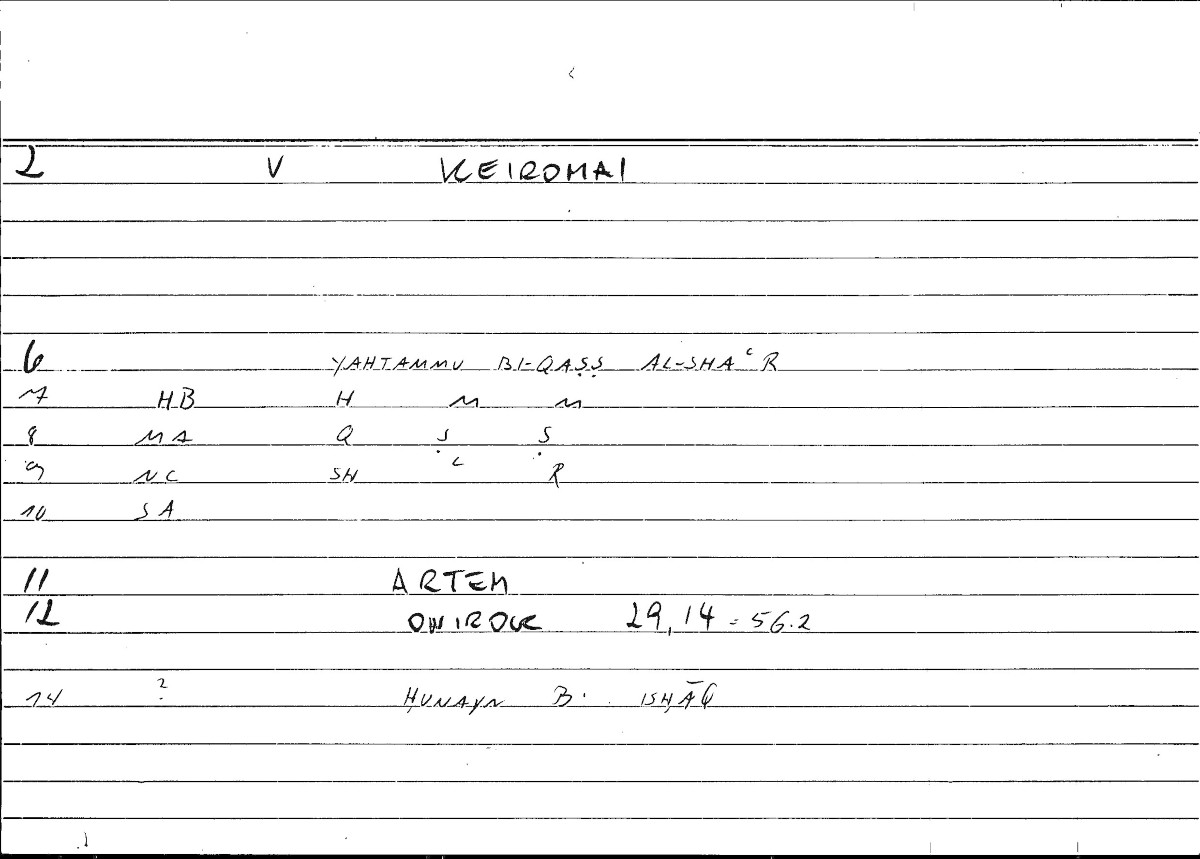 2 V KEIROMAI
6 YAHTAMMU BI-QAṢṢ AL-SHAʿR
7 HB H M M
8 MA Q Ṣ Ṣ
9 NC SH ʿ R
10 SA
11 ARTEM
12 ONIROCR 29,14 = 56.2
14 ? ḤUNAYN B. ISḤĀQ